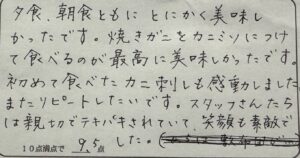 夕食、朝食ともに とにかく美味し
かったです。焼きガニをカニミソにつけ
て食べるのが最高に美味しかったです。
初めて食べたカニ刺しも感動しました
またリピートしたいです。スタッフさんたち
は親切でテキパキされていて、笑顔も素敵で
10点満点で 9.5 点 した。